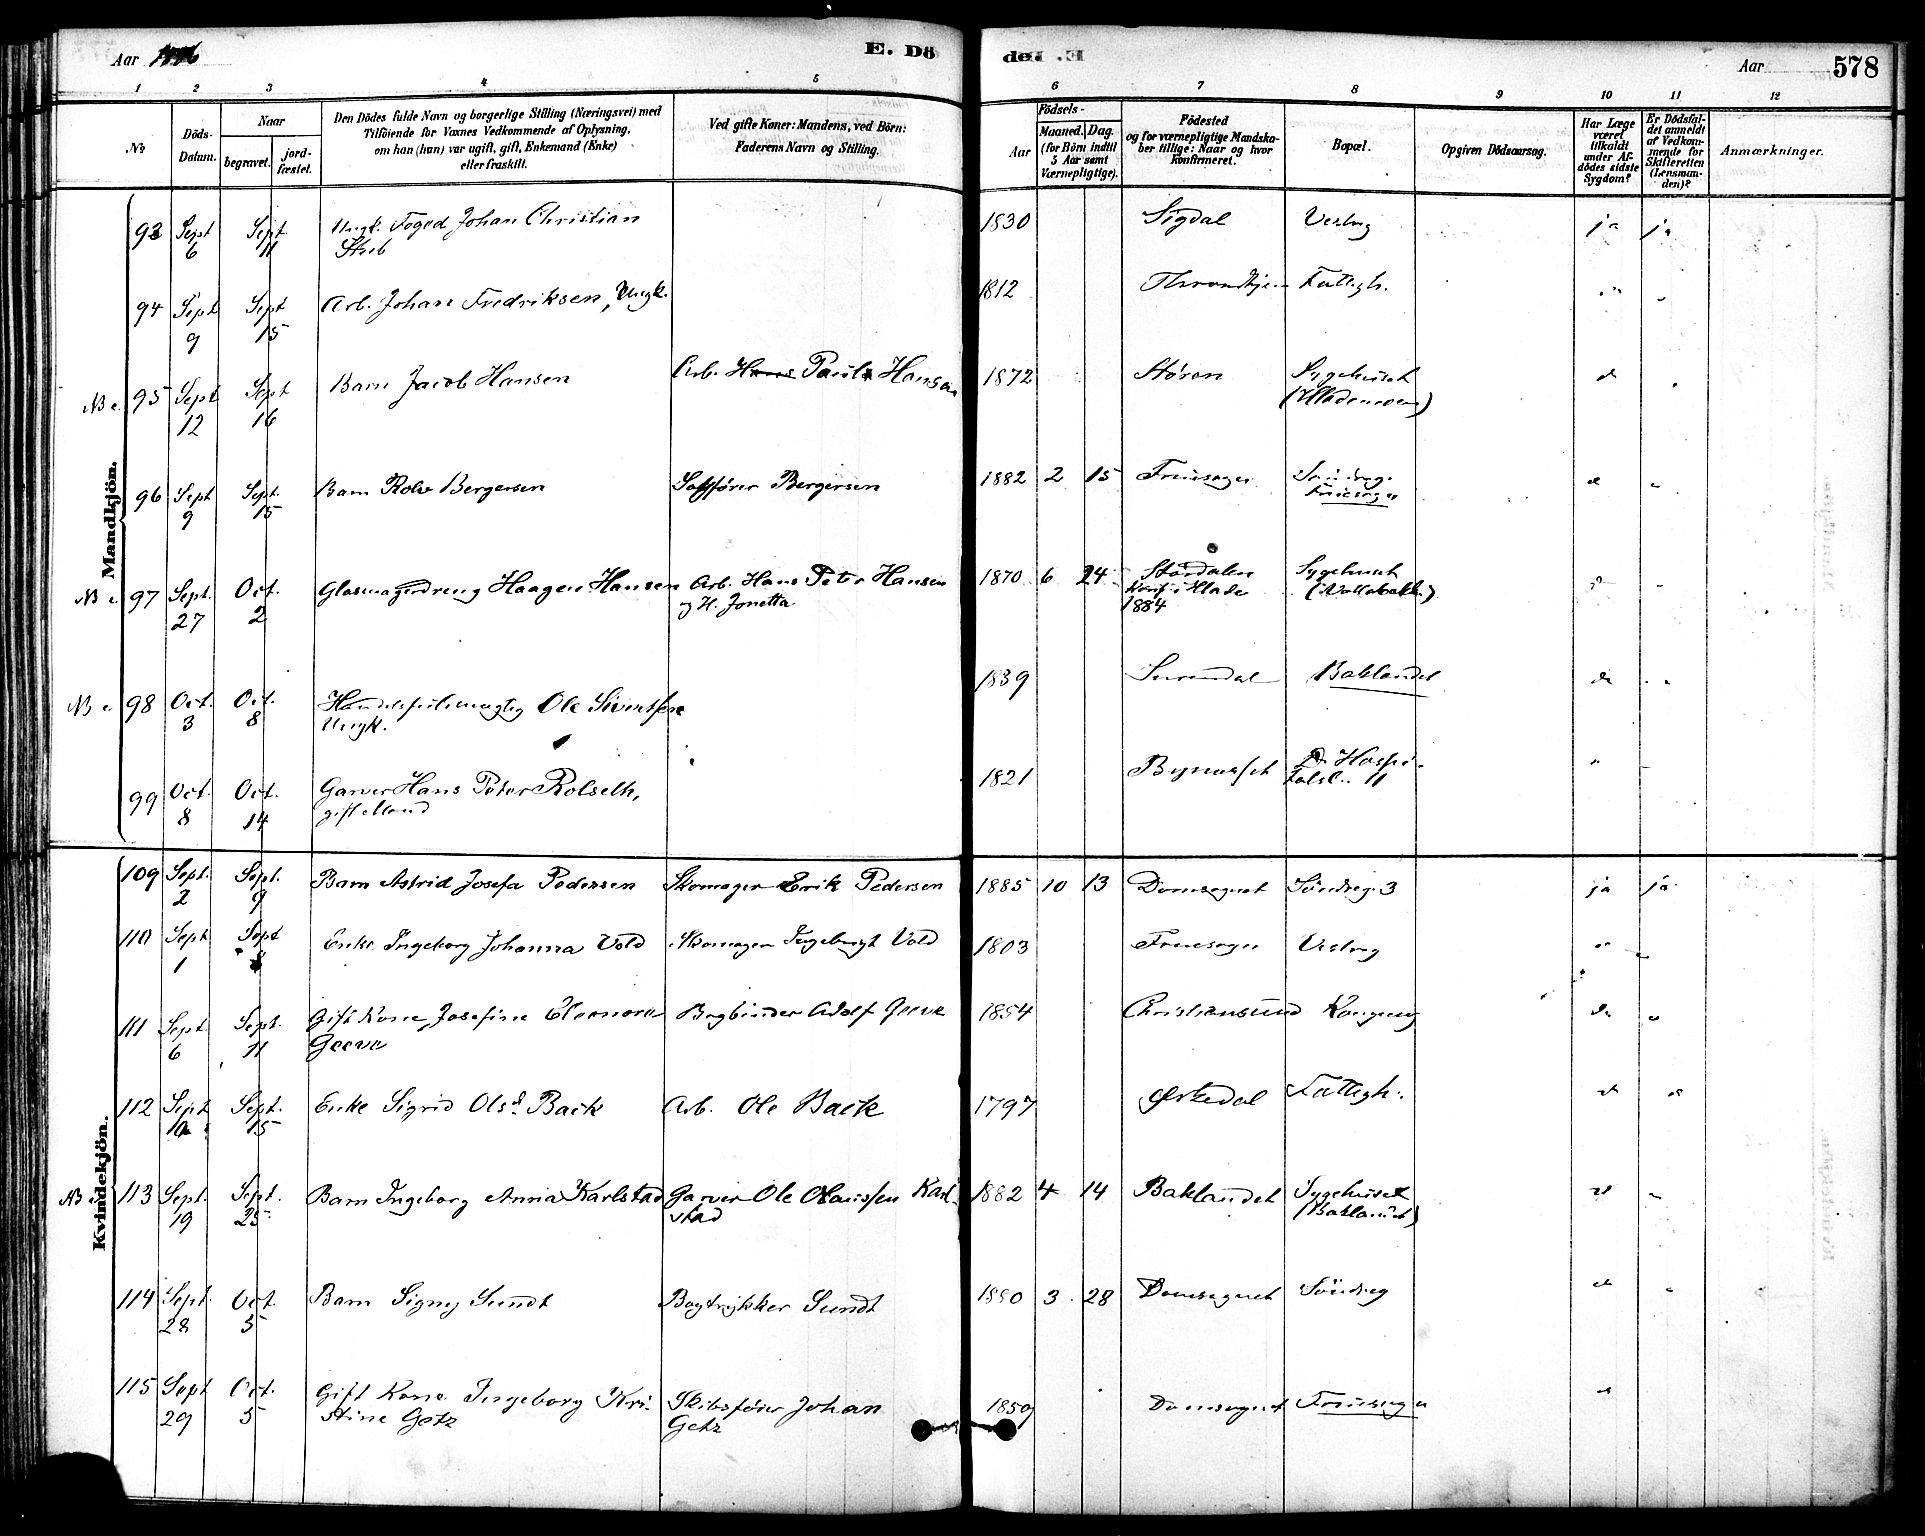 Aar 1886
E. Dö
de. E.
Aar 578
1 2 3 4 5 6 7 8 9 10 11 12
No
Döds-Datum.
Naar
begravet.
jord-fæstet.
Den Dödes fulde Navn og borgerlige Stilling (Næringsvei) med
Tilföiende for Voxnes Vedkommende af Oplysning,
om han (hun) var ugift, gift, Enkemand (Enke)
eller fraskilt.
Ved gifte Koner: Mandens, ved Börn:
Faderens Navn og Stilling.
Födsels-
Aar
Maaned. Dag.
(for Börn indtil
5 Aar samt
Værnepligtige).
Födested
og for værnepligtige Mandska-
ber tillige: Naar og hvor
Konfirmeret.
Bopæl.
Opgiven Dödsaarsag.
Har Læge
været
tilkaldt
under Af-
dödes sidste
Sygdom?
Er Dödsfal-
det anmeldt
af Vedkom-
mende for
Skifteretten
(Lensman-
den)?
Anmærkninger.
Mandkjön.
93 Sept 6 Sept. 11 Ungk. Foged Johan Christian 1830 Sigdal ja ja
94 Sept 9 Sept 15 Arb. Johan Fredriksen, Ungk. 1812 Throndhjem Fattigh.
95 Sept 12 Sept 16 Barn Jacob Hansen Arb. Hans Paul Hansen 1872 Støren Sygehuset
96 Sept 9 Sept. 15 Barn Rolv Bergersen Bergersen 1882 2 15 Fruesogn
Fruesogn
97 Sept. 27 Oct. 2 Glasmagerdreng Haagen Hansen Arb. Hans Peter Hansen 1870 6 24 Stordalen Sygehuset
og H. Jonetta Konf. i Hlade
1884
98 Oct. 3 Oct. 8 Handelsfuldmægtig Ole Sivertsen 1839 Surendal Baklandet
Ungk.
99 Oct. 8 Oct. 14 Garver Hans Peter Rolseth, 1821 Bynæsset Hospi-
gift Mand
Kvindekjön.
109 Sept. 2 Sept. 9 Barn Astrid Josefa Pedersen Skomager Erik Pedersen 1885 10 13 Domsognet Söndreg. 3 ja ja
110 Sept 1 Sept 8 Enke Ingeborg Johanna Vold Skomager Ingebrigt Vold 1803 Fruesogn
111 Sept 6 Sept. 11 Gift Kone, Josefine Eleonora Bogbinder Adolf Geeve 1854 Christiansund Kongensg
112 Sept 10 Sept. 15 Enke Sigrid Olsd. Back Arb. Ole Back 1797 Ørkedal Fattigh.
113 Sept. 19 Sept. 25 Barn Ingeborg Anna Karlstad Garver Ole Olaussen Karl- 1882 4 14 Baklandet Sygehuset
stad (Baklandet)
114 Sept. 28 Oct. 5 Barn Signy Sundt Bogtrykker Sundt 1880 3 28 Domsognet Söndreg
115 Sept 29 Oct. 5 Gift Kone Ingeborg Kri- Skibsfører Johan 1850 Domsognet Fruesogn
stine Getz Getz